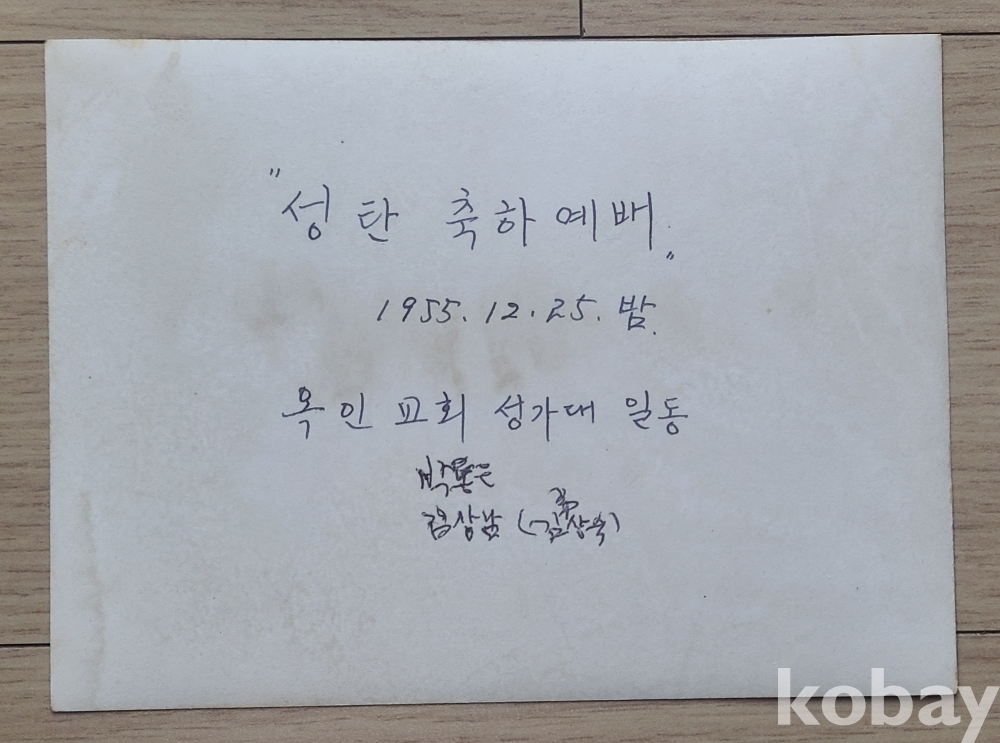 "성탄 축하예배."
1955. 12. 25. 밤.
옥인 교회 성가대 일동
김상남
kobay